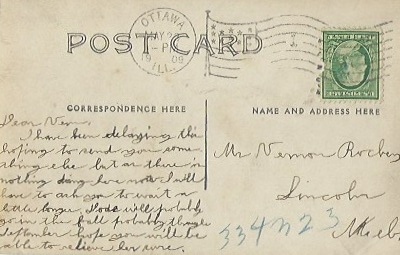 POST CARD
OTTAWA
MAY
19 09
ILL.
CORRESPONDENCE HERE
NAME AND ADDRESS HERE
Dear Vern.
I have been delaying this
hoping to send you some
thing else but as there is
nothing doing here now I will
have to ask you to wait a
little longer. will probably
go in the fall probably
September hope you will be
able to relieve her
Mr Vernon
Lincoln
Neb
334 N 23